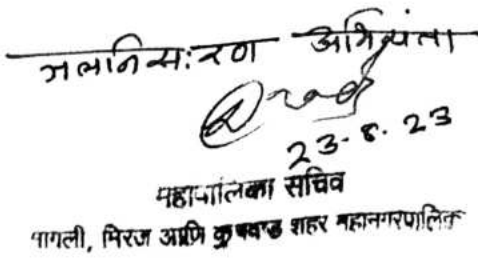 मलनिस:रण अभियंता
23-8-23
महापालिका सचिव
सांगली, मिरज आणि कुपवाड शहर महानगरपालिका